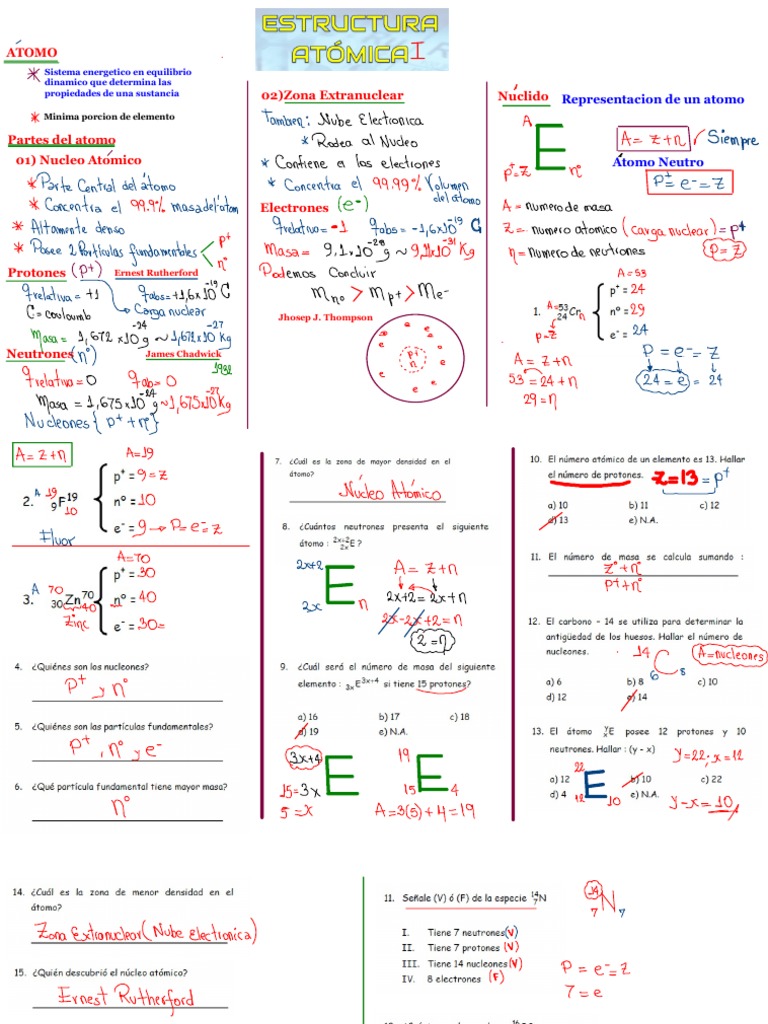 ESTRUCTURA
ATÓMICA I
ÁTOMO
* Sistema energetico en equilibrio
dinamico que determina las
propiedades de una sustancia
* Minima porcion de elemento
Partes del atomo
01) Nucleo Atómico
* Parte Central del átomo
* Concentra el 99.9% masa del átom
* Altamente denso
* Posee 2 Partículas fundamentales < p+
n°
Protones (p+) Ernest Rutherford
qrelativa = +1 qabs = +1,6x10^-19 C
C = couloumb Carga nuclear
Masa = 1,672 x10^-24 g ~ 1,672x10^-27 Kg
Neutrones (n°) James Chadwick
1932
qrelativa = 0 qab = 0
Masa = 1,675x10^-24 g ~ 1,675x10^-27 Kg
Nucleones { p+ + n° }
02)Zona Extranuclear
Tambien: Nube Electronica
* Rodea al Nucleo
* Contiene a los electrones
* Concentra el 99.99% Volumen
del atomo
Electrones (e-)
qrelativa = -1 qabs = -1,6x10^-19 C
Masa = 9,1.10^-28 g ~ 9,11x10^-31 Kg
Podemos Concluir
Mn° > Mp+ > Me-
Jhosep J. Thompson
e e e
e p+ e
n
e e e
e
Núclido Representacion de un atomo
A
E
p+=Z n°
A = Z+n Siempre
Átomo Neutro
P+ = e- = Z
A = numero de masa
Z = numero atomico (carga nuclear) = p+
n = Numero de neutrones P = Z
A = 53
1. A=53 24 Cr n
p+ = 24
n° = 29
e- = 24
p=Z
A = Z+n
53 = 24+n
29 = n
P = e- = Z
24 = e = 24
A = Z+n
A=19
2. A 19 9F19 10
p+ = 9 = Z
n° = 10
e- = 9 → P = e- = Z
Fluor
A=70
3. A 70 30Zn70 40
p+ = 30
n° = 40
e- = 30 =
Zinc
4. ¿Quiénes son los nucleones?
P+ y n°
5. ¿Quiénes son las partículas fundamentales?
P+, n° y e-
6. ¿Qué partícula fundamental tiene mayor masa?
n°
7. ¿Cuál es la zona de mayor densidad en el
átomo?
Núcleo Atómico
8. ¿Cuántos neutrones presenta el siguiente
átomo : 2x+2 2x E ?
2x+2
E
2x n
A = Z+n
2x+2 = 2x+n
2x-2x+2 = n
2 = n
9. ¿Cuál será el número de masa del siguiente
elemento : 3xE3x+4 si tiene 15 protones?
a) 16 b) 17 c) 18
d) 19 e) N.A.
3x+4 E
15=3x
5=x
19
E
15 4
A=3(5)+4=19
10. El número atómico de un elemento es 13. Hallar
el número de protones. Z=13 = p+
a) 10 b) 11 c) 12
d) 13 e) N.A.
11. El número de masa se calcula sumando :
Z + n°
P+ + n°
12. El carbono - 14 se utiliza para determinar la
antigüedad de los huesos. Hallar el número de
nucleones. 14 C 6 8 A=nucleones
a) 6 b) 8 c) 10
d) 12 e) 14
13. El átomo y x E posee 12 protones y 10
neutrones. Hallar : (y - x)
y=22; x=12
a) 12 b) 10 c) 22
d) 4 e) N.A.
22
E
12 10
y-x = 10
14. ¿Cuál es la zona de menor densidad en el
átomo?
Zona Extranuclear(Nube electronica)
15. ¿Quién descubrió el núcleo atómico?
Ernest Rutherford
11. Señale (V) ó (F) de la especie 14 7 N
I. Tiene 7 neutrones (V)
II. Tiene 7 protones (V)
III. Tiene 14 nucleones (V)
IV. 8 electrones (F)
14
N
7 7
P = e- = Z
7 = e